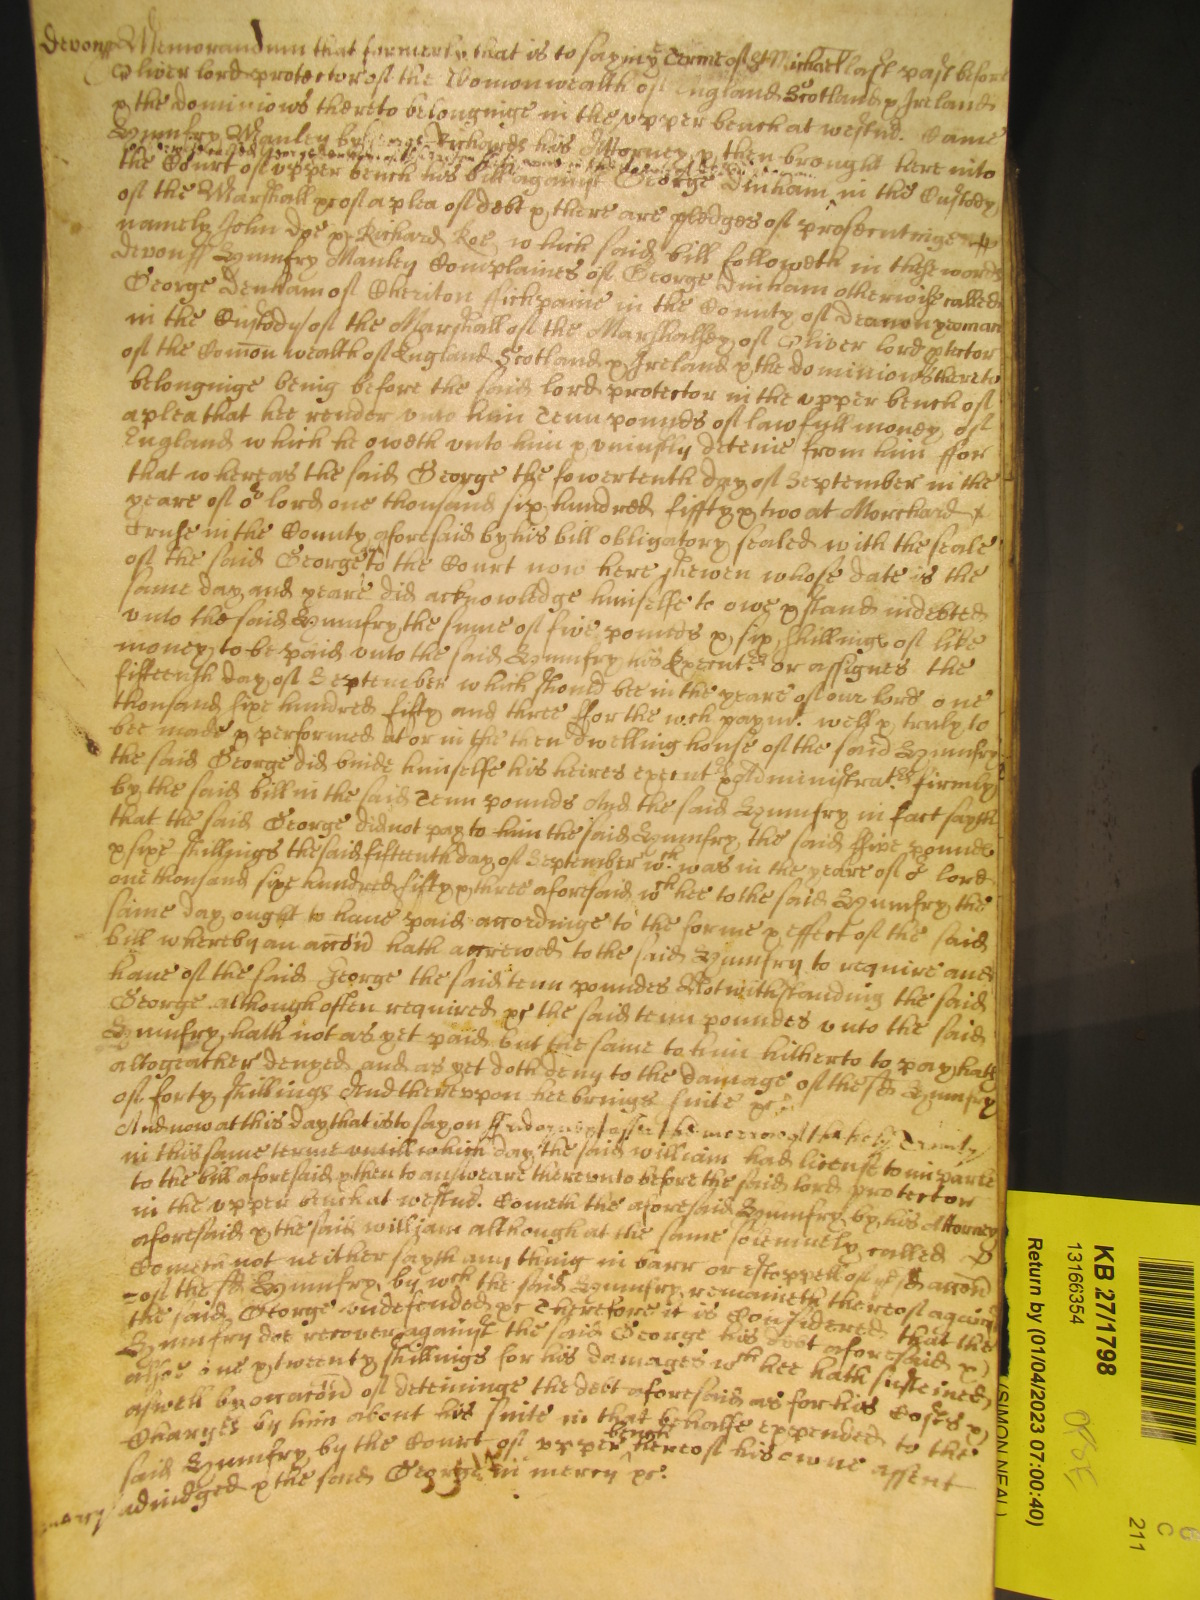 Devonss Memorandum that formerly that is to say in ye Terme of St Michaell last past before
Oliver lord protector of the Comonwealth of England Scotland & Ireland
& the dominions thereto belonginge in the upper bench at westmr. Came
Humfry Manley by Richards his Attorney & then brought here into
the Court of upper bench his bill against George Dinham in the Custody
of the Marshall &c of a plea of debt & there are pledges of prosecutinge
namely John Doe & Richard Roe which said bill followeth in these words
Devonss Humfry Manley Complaines of George Dinham otherwise called
George Denham of Cheriton ffickpaine in the County of Deavon yeoman
in the Custody of the Marshall of the Marshalsey of Oliver lord protector
of the Comon wealth of England Scotland & Ireland & the dominions thereto
belonginge being before the said lord protector in the upper bench of
a plea that hee render unto him Tenn pounds of lawfull money of
England which he oweth unto him & uniustly deteine from him ffor
that whereas the said George the fowertenth day of September in the
yeare of or lord one thousand six hundred fiffty & two at Morchard
Cruse in the County aforesaid by his bill obligatory sealed with the seale
of the said George to the Court now here shewen whose date is the
same day and yeare did acknowledge himselfe to owe & stand indebted
unto the said Humfry the sume of five pounds & six shillings of like
money to be paid unto the said Humfry his Executrs or assignes the
fifteenth day of September which should bee in the yeare of our lord one
thousand sixe hundred fifty and three ffor the wch paymt. well & truly to
bee made & performed at or in the then dwelling house of the said Humfry
the said George did binde himselfe his heires executrs & Administratrs firmly
by the said bill in the said Tenn pounds And the said Humfry in fact sayth
that the said George did not pay to him the said Humfry the said ffive pounds
& sixe shillings the said fifteenth day of September wch. was in the yeare of or lord
one thousand sixe hundred fifty & three aforesaid wch hee to the said Humfry the
same day ought to have paid accordinge to the forme & effect of the said
bill whereby an accon hath accrewed to the said Humfry to require and
have of the said George the said tenn poundes Notwithstanding the said
George although often required &c the said tenn poundes unto the said
Humfry hath not as yet paid but the same to him hitherto to pay hath
altogeather denyed and as yet doth deny to the damage of the sd Humfry
of forty shillings And thereupon hee brings suite &c
And now at this day that is to say on ffryday next after the morrow of the holy Trinity
in this same terme untill which day the said william had license to imparle
to the bill aforesaid & then to answeare thereunto before the said lord protector
in the upper bench at westmr. Cometh the aforesaid Humfry by his Attorney
aforesaid & the said william although at the same solemnely called
Cometh not neither sayth any thing in barr or estoppell of ye sd accon
of the sd Humfry by wch the said Humfry remaineth thereof against
the said George undefended &c Therefore it is Considered that the
Humfry doe recover against the said George his debt aforesaid &
alsoe one & twenty shillings for his damages wch hee hath susteined
aswell by occacon of deteininge the debt aforesaid as for his Costes &
Charges by him about his suite in that behalfe expended to the
said Humfry by the Court of upper bench hereof his owne assent
adiudged & the said George in mercy &c.
mercy
KB 27/1798
13166354
Return by (01/04/2023 07:00:40)
(SIMON NEAL)
C
211